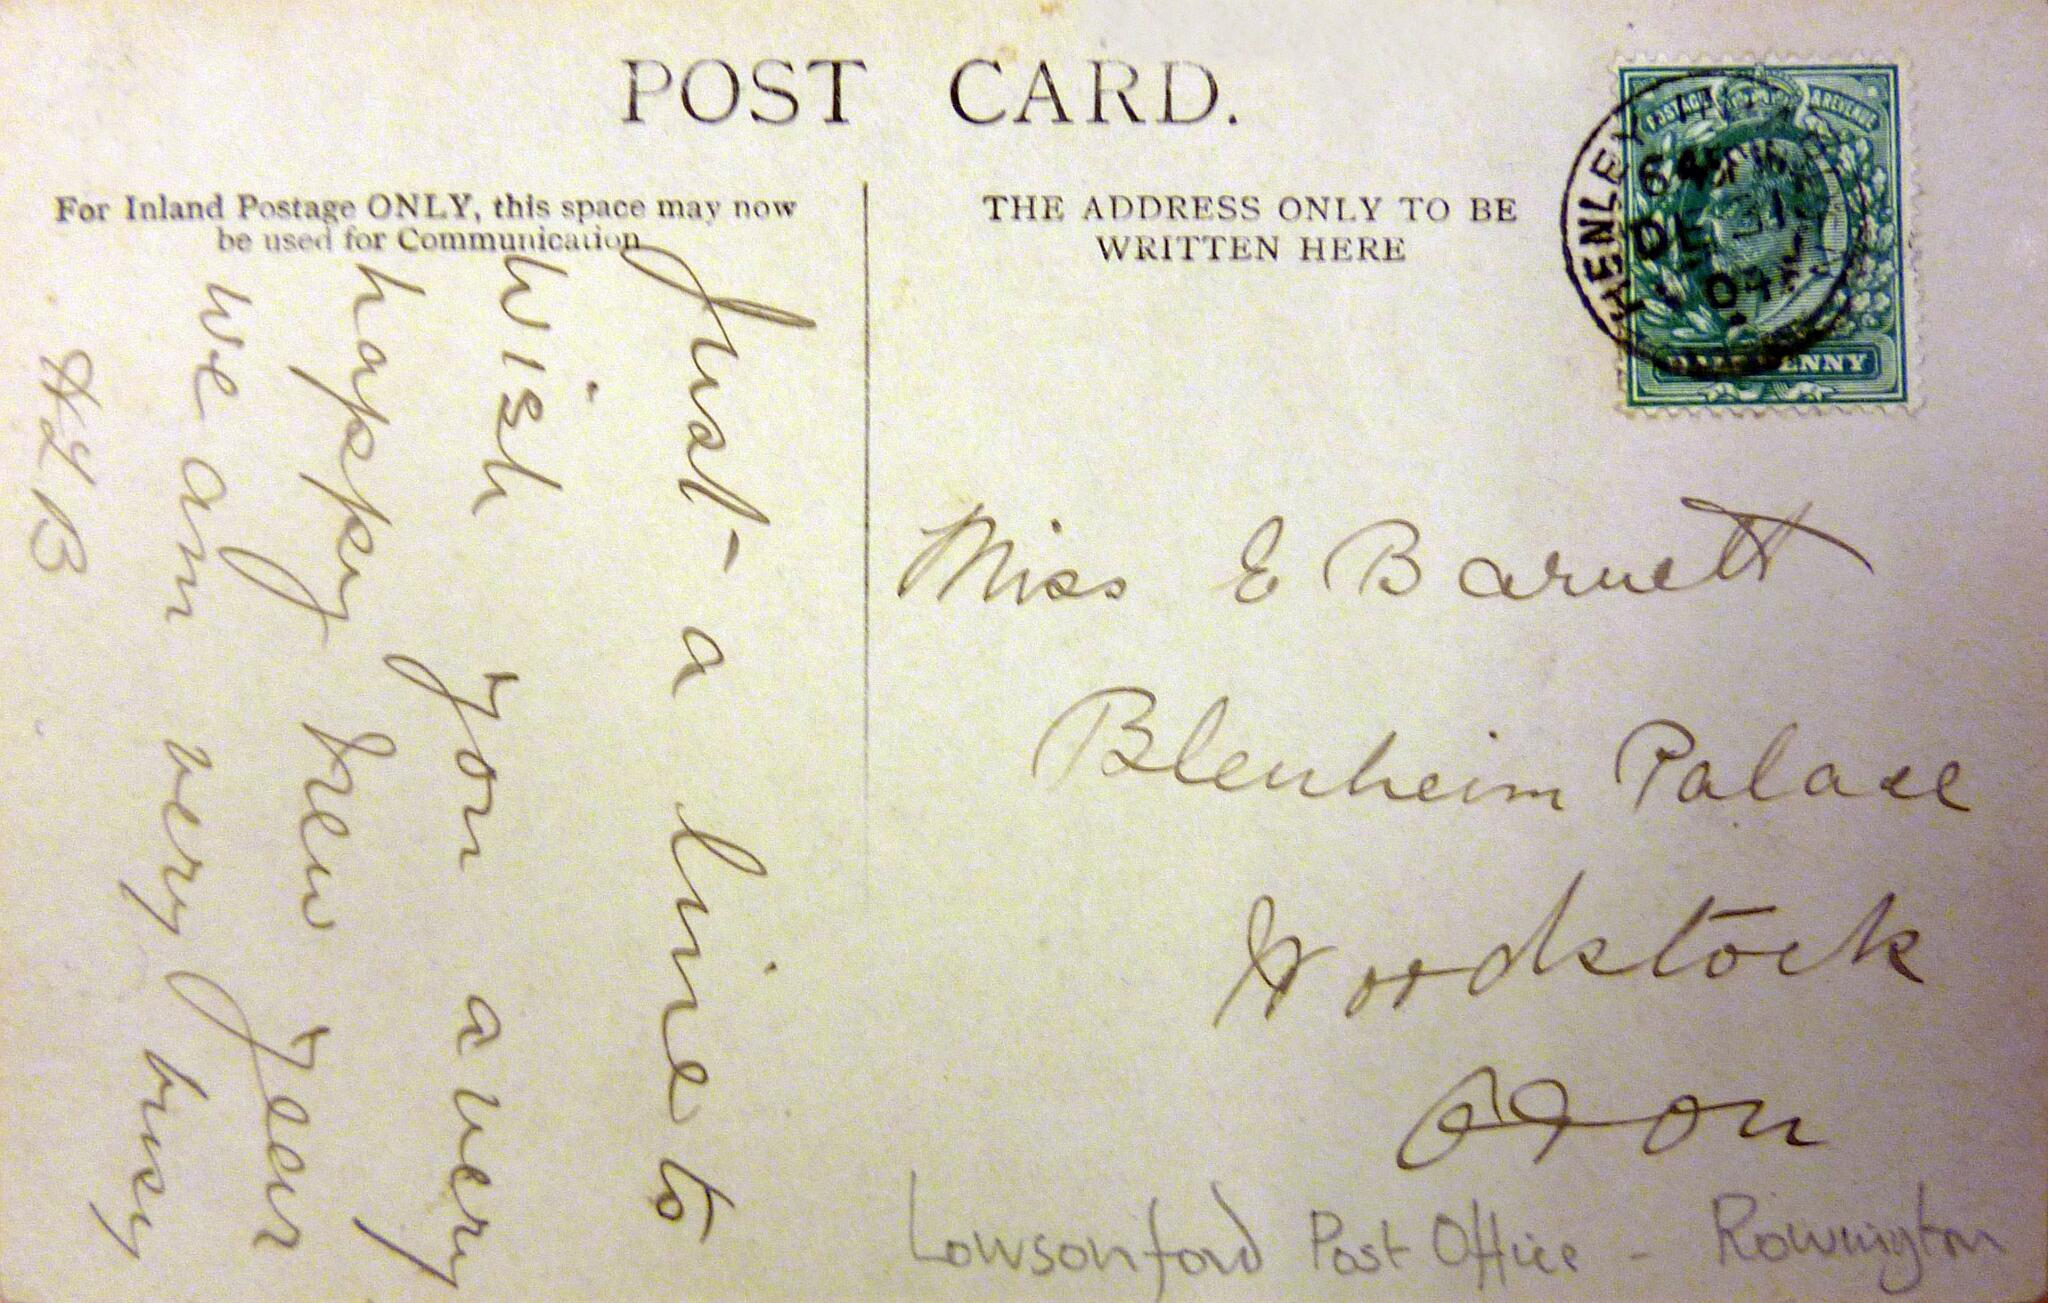 POST CARD.
For Inland Postage ONLY, this space may now
be used for Communication
THE ADDRESS ONLY TO BE
WRITTEN HERE
POSTAGE REVENUE
HENLEY
DE 31
HALFPENNY
Just a line to
wish you a very
happy New Year
we are very busy
HLB
Miss E Barnett
Blenheim Palace
Woodstock
Oxon
Lowsonford Post Office - Rowington